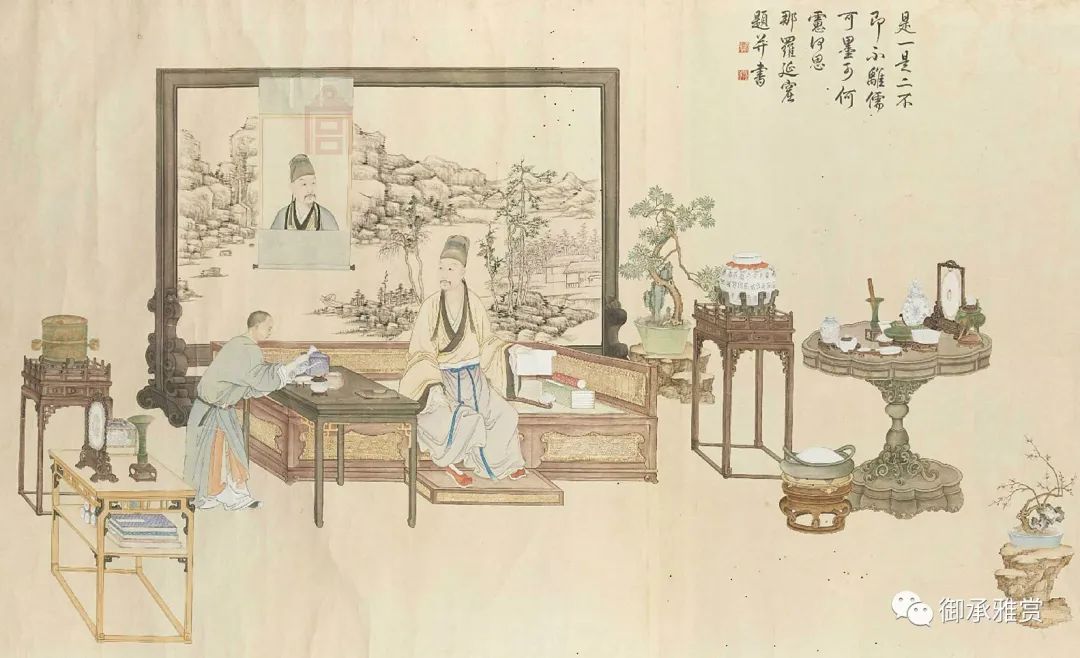 是一是二不
即不離儒
可墨可何
慮何思
那羅延窟
題并書
御承雅赏